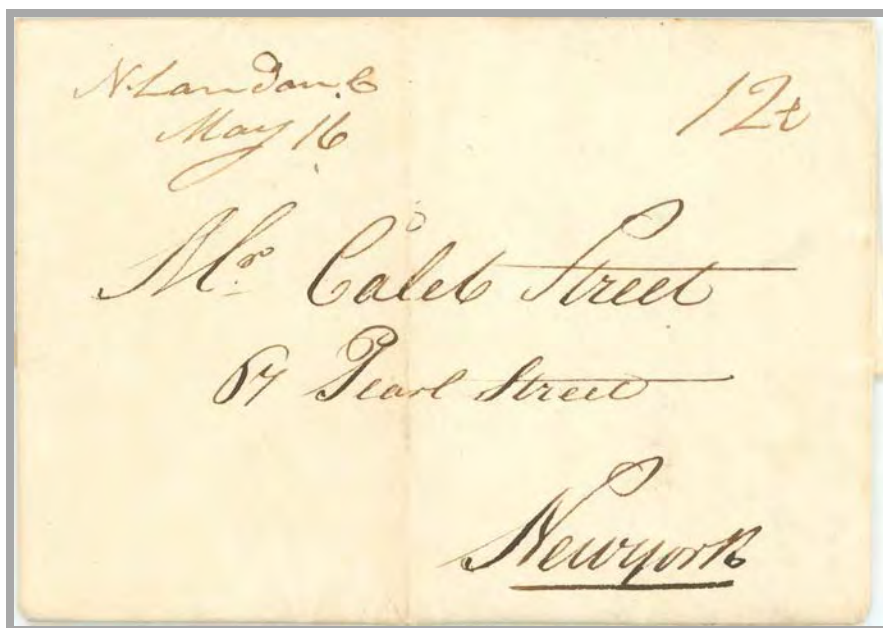 N. London. C
May 16
12½
Mr. Caleb Street
67 Pearl Street
Newyork